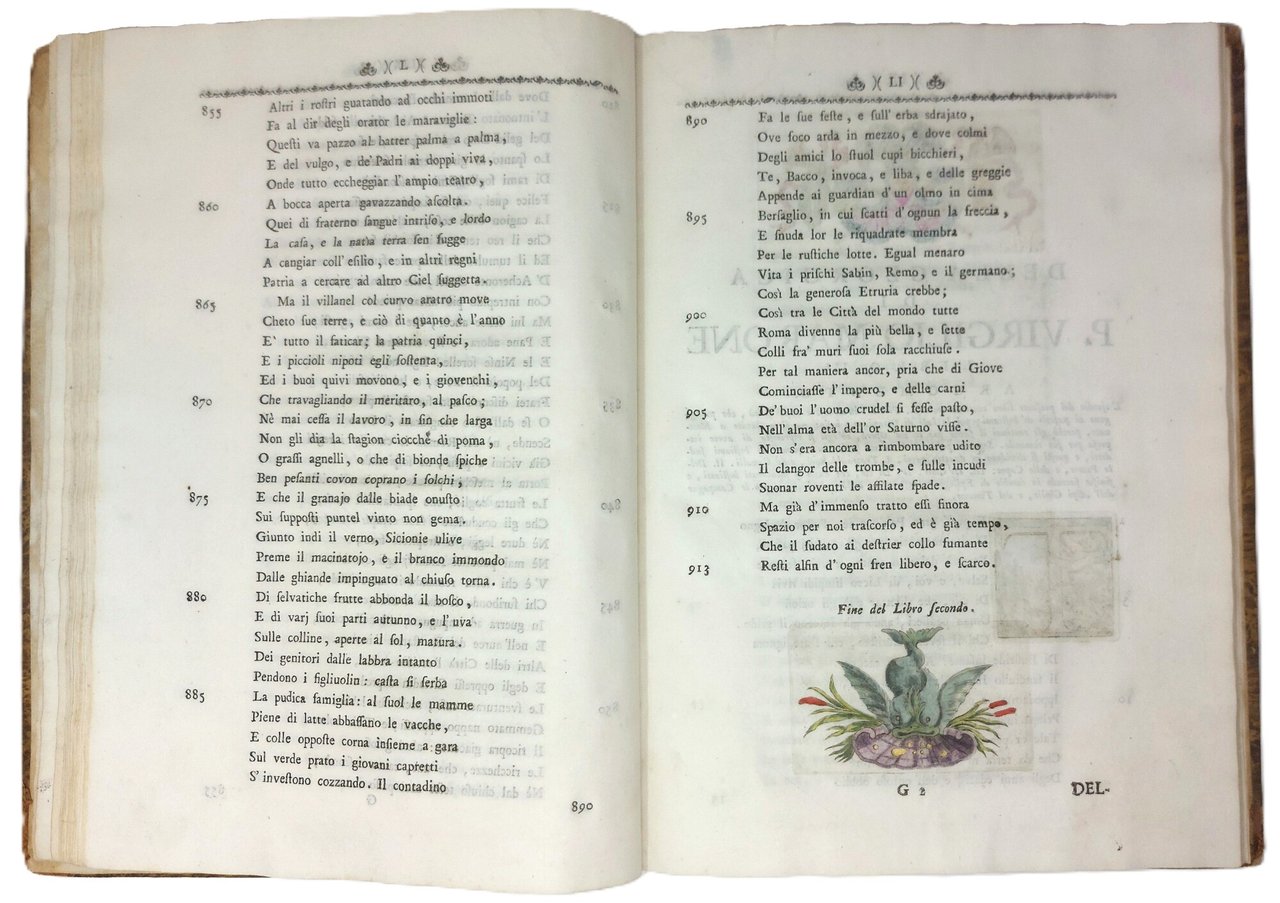 )( L )(
855 Altri i roſtri guatando ad occhi immoti
Fa al dir degli orator le maraviglie:
Queſti va pazzo al batter palma a palma,
E del vulgo, e de' Padri ai doppi viva,
Onde tutto eccheggiar l' ampio teatro,
860 A bocca aperta gavazzando aſcolta.
Quei di fraterno ſangue intriſo, e lordo
La caſa, e la natìa terra ſen fugge
A cangiar coll' eſilio, e in altri regni
Patria a cercare ad altro Ciel ſuggetta.
865 Ma il villanel col curvo aratro move
Cheto ſue terre, e ciò di quanto è l'anno
E' tutto il faticar; la patria quinci,
E i piccioli nipoti egli ſoſtenta,
Ed i buoi quivi movono, e i giovenchi,
870 Che travagliando il meritaro, al paſco;
Nè mai ceſſa il lavoro, in fin che larga
Non gli dia la ſtagion ciocchè di poma,
O graſſi agnelli, o che di bionde ſpiche
Ben peſanti covon coprano i ſolchi,
875 E che il granajo dalle biade onuſto
Sui ſuppoſti puntel vinto non gema.
Giunto indi il verno, Sicionie ulive
Preme il macinatojo, e il branco immondo
Dalle ghiande impinguato al chiuſo torna.
880 Di ſelvatiche frutte abbonda il boſco,
E di varj ſuoi parti autunno, e l'uva
Sulle colline, aperte al ſol, matura.
Dei genitori dalle labbra intanto
Pendono i figliuolin: caſta ſi ſerba
885 La pudica famiglia: al ſuol le mamme
Piene di latte abbaſſano le vacche,
E colle oppoſte corna inſieme a gara
Sul verde prato i giovani capretti
S' inveſtono cozzando. Il contadino
890
)( LI )(
890 Fa le ſue feſte, e ſull' erba sdrajato,
Ove foco arda in mezzo, e dove colmi
Degli amici lo ſtuol cupi bicchieri,
Te, Bacco, invoca, e liba, e delle greggie
Appende ai guardian d'un olmo in cima
895 Berſaglio, in cui ſcatti d'ognun la freccia,
E ſnuda lor le riquadrate membra
Per le ruſtiche lotte. Egual menaro
Vita i priſchi Sabin, Remo, e il germano;
Così la generoſa Etruria crebbe;
900 Così tra le Città del mondo tutte
Roma divenne la più bella, e ſette
Colli fra' muri ſuoi ſola racchiuſe.
Per tal maniera ancor, pria che di Giove
Cominciaſſe l'impero, e delle carni
905 De' buoi l'uomo crudel ſi feſſe paſto,
Nell'alma età dell'or Saturno viſſe.
Non s'era ancora a rimbombare udito
Il clangor delle trombe, e ſulle incudi
Suonar roventi le affilate ſpade.
910 Ma già d'immenſo tratto eſſi finora
Spazio per noi traſcorſo, ed è già tempo,
Che il ſudato ai deſtrier collo fumante
913 Reſti alfin d'ogni fren libero, e ſcarco.
Fine del Libro ſecondo.
G 2 DEL-